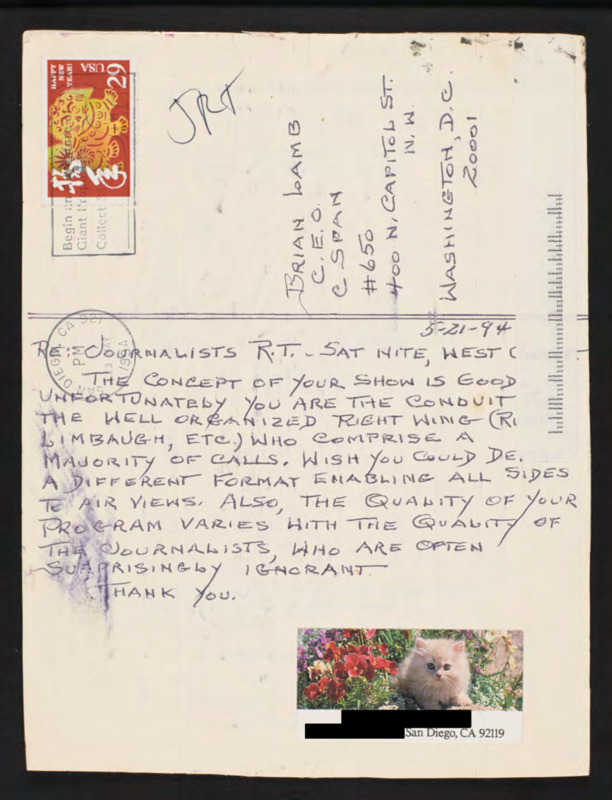 HAPPY
NEW
YEAR!
USA
29
Begin
Giant
Collect
JRT
BRIAN LAMB
C.E.O.
C SPAN
#650
400 N. CAPITOL ST.
N.W.
WASHINGTON, D.C.
20001
SAN DIEGO, CA 921
PM
1994
5-21-94
RE JOURNALISTS R.T. - SAT NITE, WEST C
THE CONCEPT OF YOUR SHOW IS GOOD
UNFORTUNATELY YOU ARE THE CONDUIT
THE WELL ORGANIZED RIGHT WING (RI
LIMBAUGH, ETC.) WHO COMPRISE A
MAJORITY OF CALLS. WISH YOU COULD DE.
A DIFFERENT FORMAT ENABLING ALL SIDES
TO AIR VIEWS. ALSO, THE QUALITY OF YOUR
PROGRAM VARIES WITH THE QUALITY OF
THE JOURNALISTS, WHO ARE OFTEN
SURPRISINGLY IGNORANT.
THANK YOU.
San Diego, CA 92119